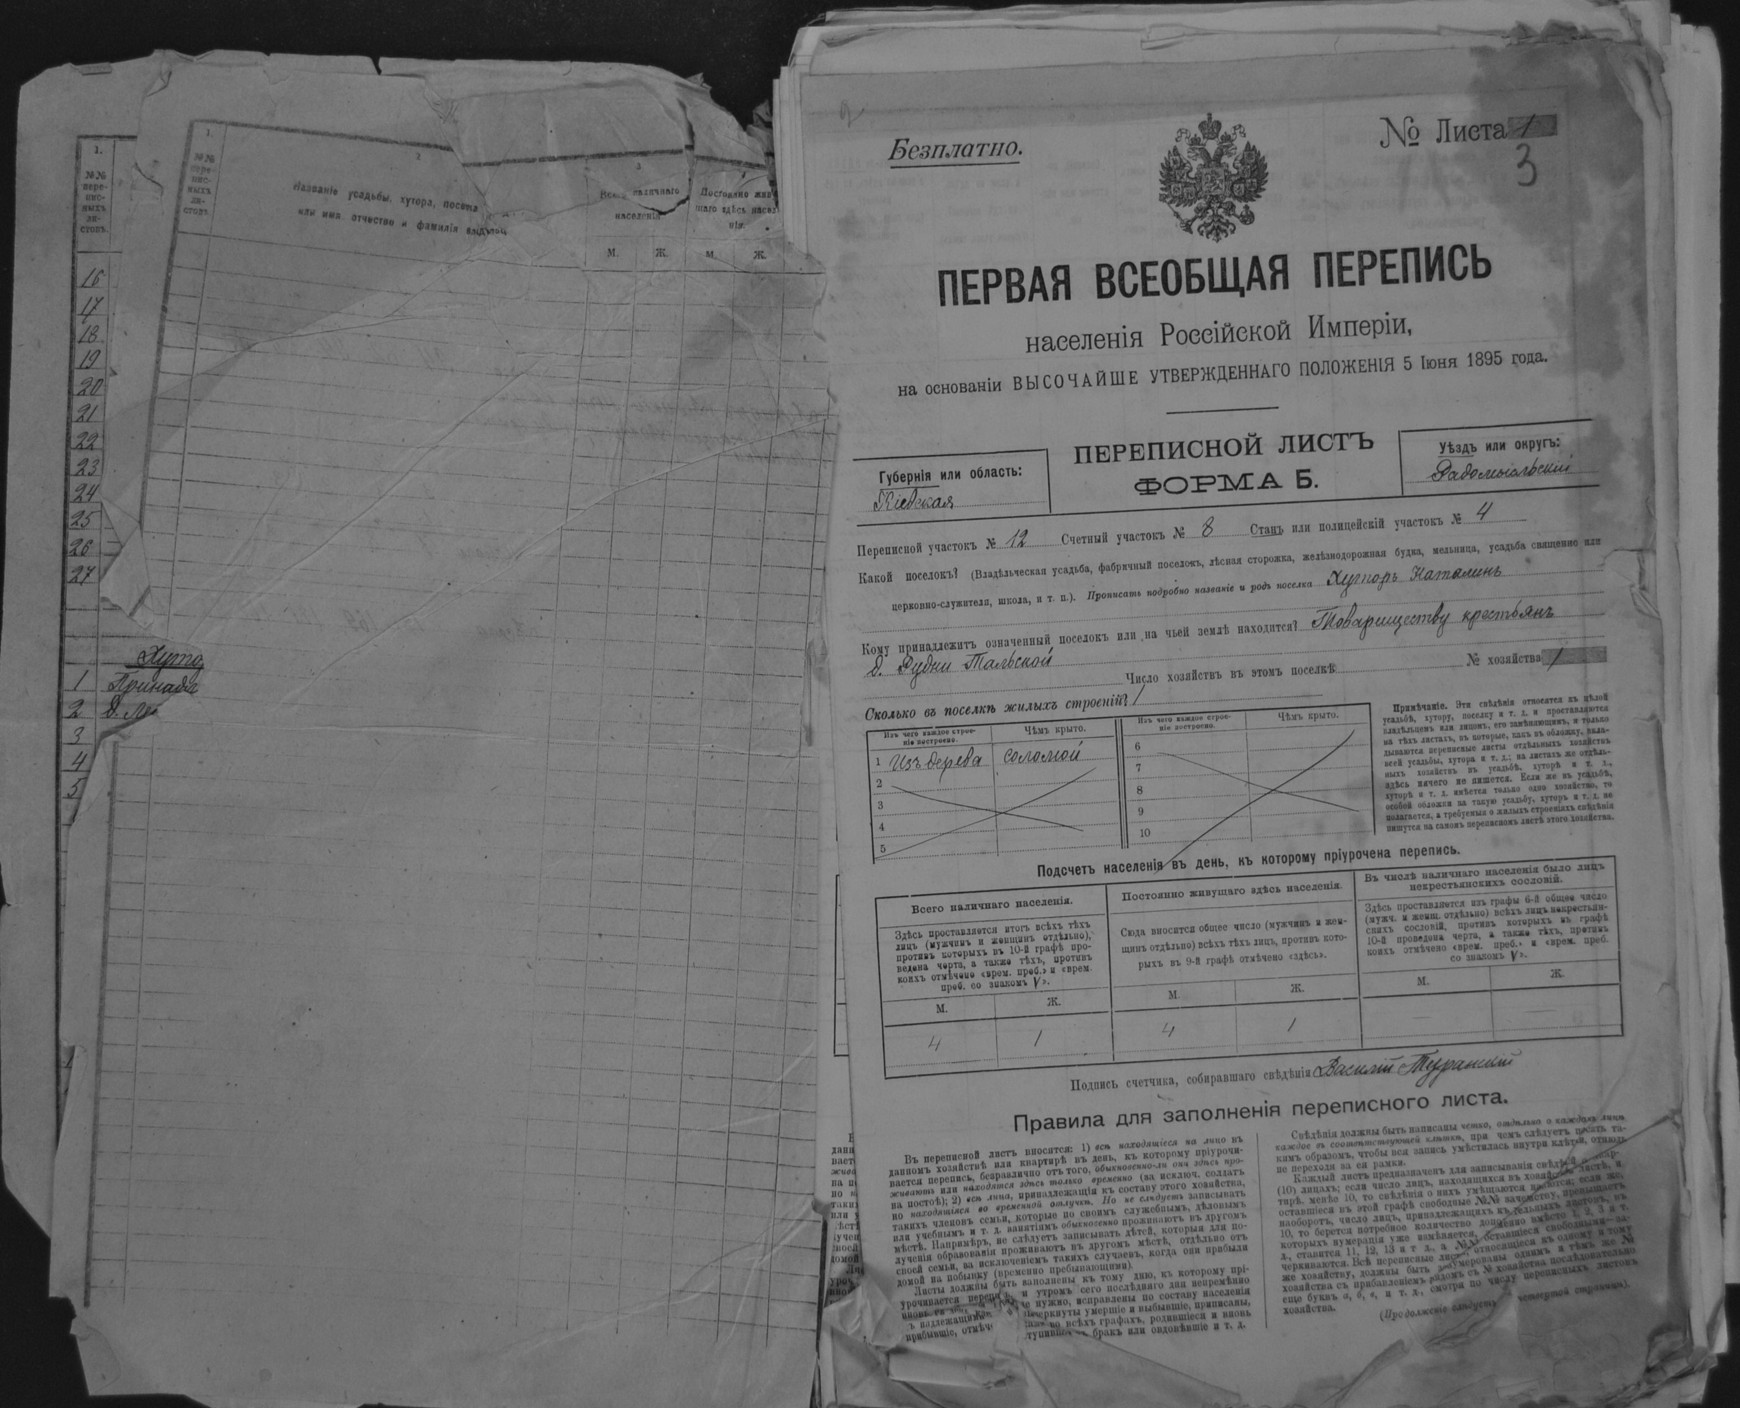 1.
№№
пере-
пис-
ныхъ
ли-
стовъ.
16
17
18
19
20
21
22
23
24
25
26
27
1
2
3
4
5
1.
№№
пере-
пис-
ныхъ
ли-
стовъ.
2
Названіе усадьбы, хутора, поселка
или имя отчество и фамилія владѣльца
3
Всего наличнаго
населенія
М. Ж.
Постоянно жив
шаго здѣсь насел
нія.
М. Ж.
Безплатно.
№ Листа 1
3
ПЕРВАЯ ВСЕОБЩАЯ ПЕРЕПИСЬ
населенія Россійской Имперіи,
на основаніи ВЫСОЧАЙШЕ УТВЕРЖДЕННАГО ПОЛОЖЕНІЯ 5 Іюня 1895 года.
Губернія или область:
Кіевская
ПЕРЕПИСНОЙ ЛИСТЪ
ФОРМА Б.
Уѣздъ или округъ:
Радомысльскій
Переписной участокъ № 12 Счетный участокъ № 8 Станъ или полицейскій участокъ № 4
Какой поселокъ? (Владѣльческая усадьба, фабричный поселокъ, лѣсная сторожка, желѣзнодорожная будка, мельница, усадьба священно или
церковно-служителя, школа, и т. п.). Прописать подробно названіе и родъ поселка Хуторъ Наталинъ
Кому принадлежитъ означенный поселокъ или на чьей землѣ находится? Товариществу крестьянъ
д. Рудни Тальской
Число хозяйствъ въ этомъ поселкѣ № хозяйства 1
Сколько въ поселкѣ жилыхъ строеній? 1
Изъ чего каждое строе-
ніе построено. Чѣмъ крыто.
1 Изъ дерева соломой
2
3
4
5
Изъ чего каждое строе-
ніе построено. Чѣмъ крыто.
6
7
8
9
10
Примѣчаніе. Эти свѣдѣнія относятся къ цѣлой
усадьбѣ, хутору, поселку и т. д. и проставляются
владѣльцемъ или лицомъ, его замѣняющимъ, и только
на тѣхъ листахъ, въ которые, какъ въ обложку, вкла-
дываются переписные листы отдѣльныхъ хозяйствъ
всей усадьбы, хутора и т. д.; на листахъ же отдѣль-
ныхъ хозяйствъ въ усадьбѣ, хуторѣ и т. д.,
здѣсь ничего не пишется. Если же въ усадьбѣ,
хуторѣ и т. д. имѣется только одно хозяйство, то
особой обложки на такую усадьбу, хуторъ и т. д. не
полагается, а требуемыя о жилыхъ строеніяхъ свѣдѣнія
пишутся на самомъ переписномъ листѣ этого хозяйства.
Подсчетъ населенія въ день, къ которому пріурочена перепись.
Всего наличнаго населенія.
Здѣсь проставляется итогъ всѣхъ тѣхъ
лицъ (мужчинъ и женщинъ отдѣльно),
противъ которыхъ въ 10-й графѣ про-
ведена черта, а также тѣхъ, противъ
коихъ отмѣчено «врем. преб.» и «врем.
преб. со знакомъ V».
М. Ж.
4 1
Постоянно живущаго здѣсь населенія.
Сюда вносится общее число (мужчинъ и жен-
щинъ отдѣльно) всѣхъ тѣхъ лицъ, противъ кото-
рыхъ въ 9-й графѣ отмѣчено «здѣсь».
М. Ж.
4 1
Въ числѣ наличнаго населенія было лицъ
некрестьянскихъ сословій.
Здѣсь проставляется изъ графы 6-й общее число
(мужч. и женщ. отдѣльно) всѣхъ лицъ некрестьян-
скихъ сословій, противъ которыхъ въ графѣ
10-й проведена черта, а также тѣхъ, противъ
коихъ отмѣчено «врем. преб.» и «врем. преб.
со знакомъ V».
М. Ж.
— —
Подпись счетчика, собиравшаго свѣдѣнія Василій Туранскій
Правила для заполненія переписного листа.
Въ переписной листъ вносятся: 1) всѣ находящіеся на лицо въ
данномъ хозяйствѣ или квартирѣ въ день, къ которому пріурочи-
вается перепись, безразлично отъ того, обыкновенно-ли они здѣсь про-
живаютъ или находятся здѣсь только временно (за исключ. солдатъ
на постоѣ); 2) всѣ лица, принадлежащія къ составу этого хозяйства,
но находящіеся во временной отлучкѣ. Но не слѣдуетъ записывать
такихъ членовъ семьи, которые по своимъ служебнымъ, дѣловымъ
или учебнымъ и т. д. занятіямъ обыкновенно проживаютъ въ другомъ
мѣстѣ. Напримѣръ, не слѣдуетъ записывать дѣтей, которыя для по-
лученія образованія проживаютъ въ другомъ мѣстѣ, отдѣльно отъ
своей семьи, за исключеніемъ такихъ случаевъ, когда они прибыли
домой на побывку (временно пребывающими).
Листы должны быть заполнены къ тому дню, къ которому прі-
урочивается и утромъ сего послѣдняго дня непремѣнно
нужно, исправлены по составу населенія
вычеркнуты умершіе и выбывшіе, приписаны,
во всѣхъ графахъ, родившіеся и вновь
прибывшіе, бракъ или овдовѣвшіе и т. д.
Свѣдѣнія должны быть написаны четко, отдѣльно о каждомъ лицѣ
каждое въ соотвѣтствующей клѣткѣ, при чемъ слѣдуетъ писать та-
кимъ образомъ, чтобы вся запись умѣстилась внутри клѣтки, отнюдь
не переходя за ея рамки.
Каждый листъ предназначенъ для записыванія свѣдѣній о
(10) лицахъ; если число лицъ, находящихся въ хозяйствѣ
менѣе 10, то свѣдѣнія о нихъ умѣщаются если же,
оставшіеся въ этой графѣ свободные №№
наоборотъ, число лицъ, принадлежащихъ къ
10, то берется потребное количество
которыхъ нумерація уже измѣняется, вмѣсто 1, 2, 3 и т.
д., ставится 11, 12, 13 и т. д., а оставшіеся свободными
черкиваются. Всѣ переписные листы, относящіеся къ одному и тому
же хозяйству, должны быть однимъ и тѣмъ же №
хозяйства съ прибавленіемъ рядомъ съ № хозяйства послѣдовательно
еще буквъ а, б, в, и т. д., смотря по числу переписныхъ листовъ
хозяйства.